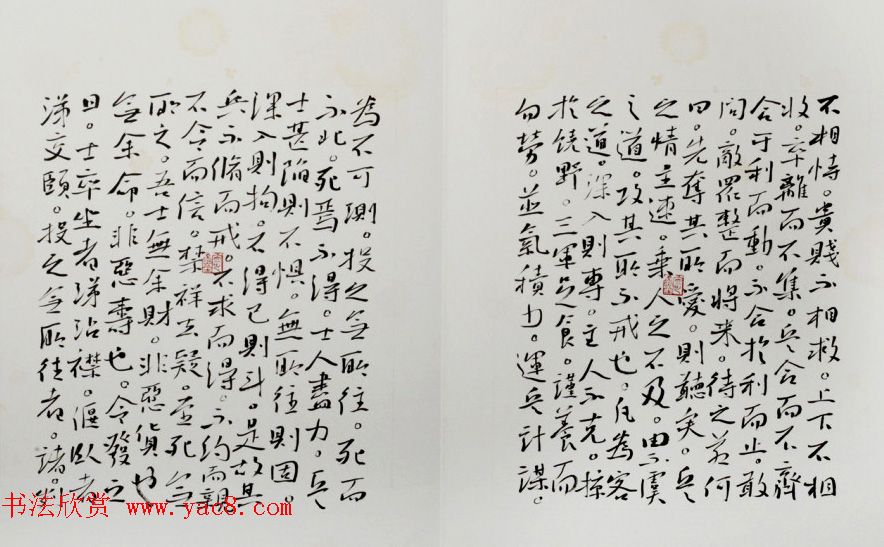 不相恃。貴賤不相救。上下不相
收。卒離而不集。兵合而不齊
合于利而動。不合於利而止。敢
問。敵眾整而將来。待之若何
曰。先奪其所愛。則聽矣。兵
之情主速。乘人之不及。由不虞
之道。攻其所不戒也。凡為客
之道。深入則專。主人不克。掠
於饒野。三軍足食。謹養而
勿勞。並氣積力。運兵計謀。
為不可測。投之無所往。死而
不北。死焉不得。士人盡力。兵
士甚陷則不懼。無所往則固。
深入則拘。不得已則斗。是故其
兵不脩而戒。不求而得。不約而親
不令而信。禁祥去疑。至死無
所之。吾士無余財。非惡貨也
無余命。非惡壽也。令發之
日。士卒坐者涕沾襟。偃臥者
涕交頤。投之無所往者。諸劌
书法欣赏 www.yac8.com